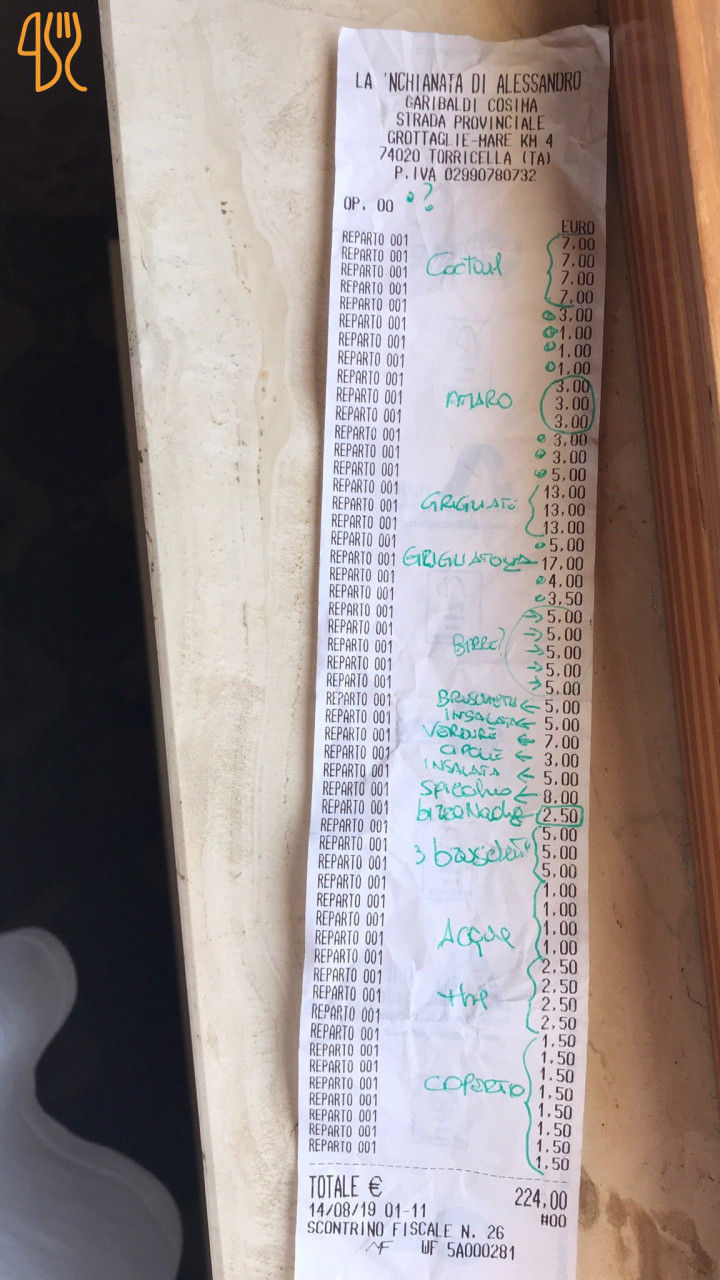 LA 'NCHIANATA DI ALESSANDRO
GARIBALDI COSIMA
STRADA PROVINCIALE
GROTTAGLIE-MARE KM 4
74020 TORRICELLA (TA)
P.IVA 02990780732
OP. 00 ?
EURO
REPARTO 001 7.00
REPARTO 001 Coctail 7.00
REPARTO 001 7.00
REPARTO 001 7.00
REPARTO 001 3.00
REPARTO 001 1.00
REPARTO 001 1.00
REPARTO 001 1.00
REPARTO 001 3.00
REPARTO 001 AMARO 3.00
REPARTO 001 3.00
REPARTO 001 3,00
REPARTO 001 3.00
REPARTO 001 5.00
REPARTO 001 13.00
REPARTO 001 GRIGLIATE 13.00
REPARTO 001 13.00
REPARTO 001 5.00
REPARTO 001 17.00
REPARTO 001 4.00
REPARTO 001 3,50
REPARTO 001 5.00
REPARTO 001 5.00
REPARTO 001 BIRRE? 5.00
REPARTO 001 5.00
REPARTO 001 5.00
REPARTO 001 BRUSCHETTA 5.00
REPARTO 001 INSALATA 5.00
REPARTO 001 VERDURE 7.00
REPARTO 001 CIPOLLE 3.00
REPARTO 001 INSALATA 5.00
REPARTO 001 8.00
REPARTO 001 2.50
REPARTO 001 5.00
REPARTO 001 3 5.00
REPARTO 001 5.00
REPARTO 001 1.00
REPARTO 001 1.00
REPARTO 001 Acque 1.00
REPARTO 001 1.00
REPARTO 001 2.50
REPARTO 001 2.50
REPARTO 001 the 2.50
REPARTO 001 2.50
REPARTO 001 1.50
REPARTO 001 1.50
REPARTO 001 1.50
REPARTO 001 COPERTO 1,50
REPARTO 001 1.50
REPARTO 001 1.50
REPARTO 001 1.50
REPARTO 001 1,50
TOTALE € 224,00
14/08/19 01-11 #00
SCONTRINO FISCALE N. 26
MF WF 5A000281